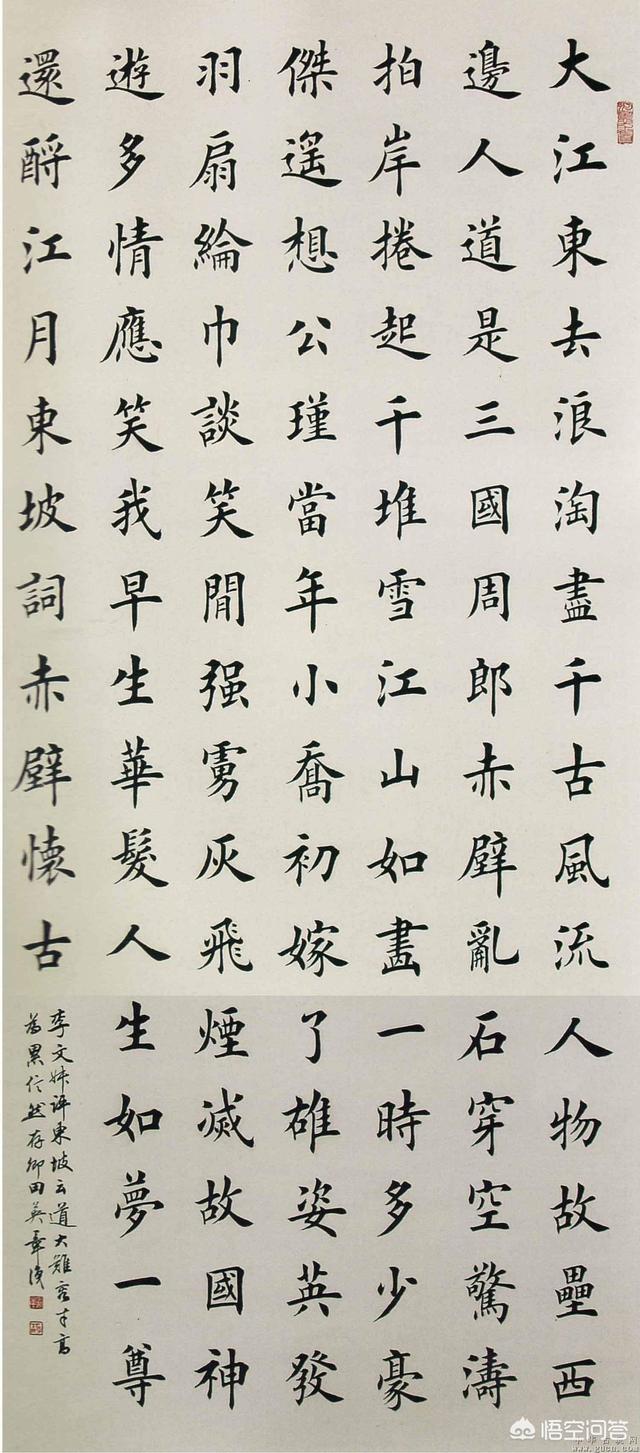 大江東去浪淘盡千古風流人物故壘西
邊人道是三國周郎赤壁亂石穿空驚濤
拍岸捲起千堆雪江山如畫一時多少豪
傑遙想公瑾當年小喬初嫁了雄姿英發
羽扇綸巾談笑閒强虜灰飛煙滅故國神
遊多情應笑我早生華髮人生如夢一尊
還酹江月東坡詞赤壁懷古
李文評東坡云道大難容才高
為累信然存田英章
悟空问答
www.gucn.com